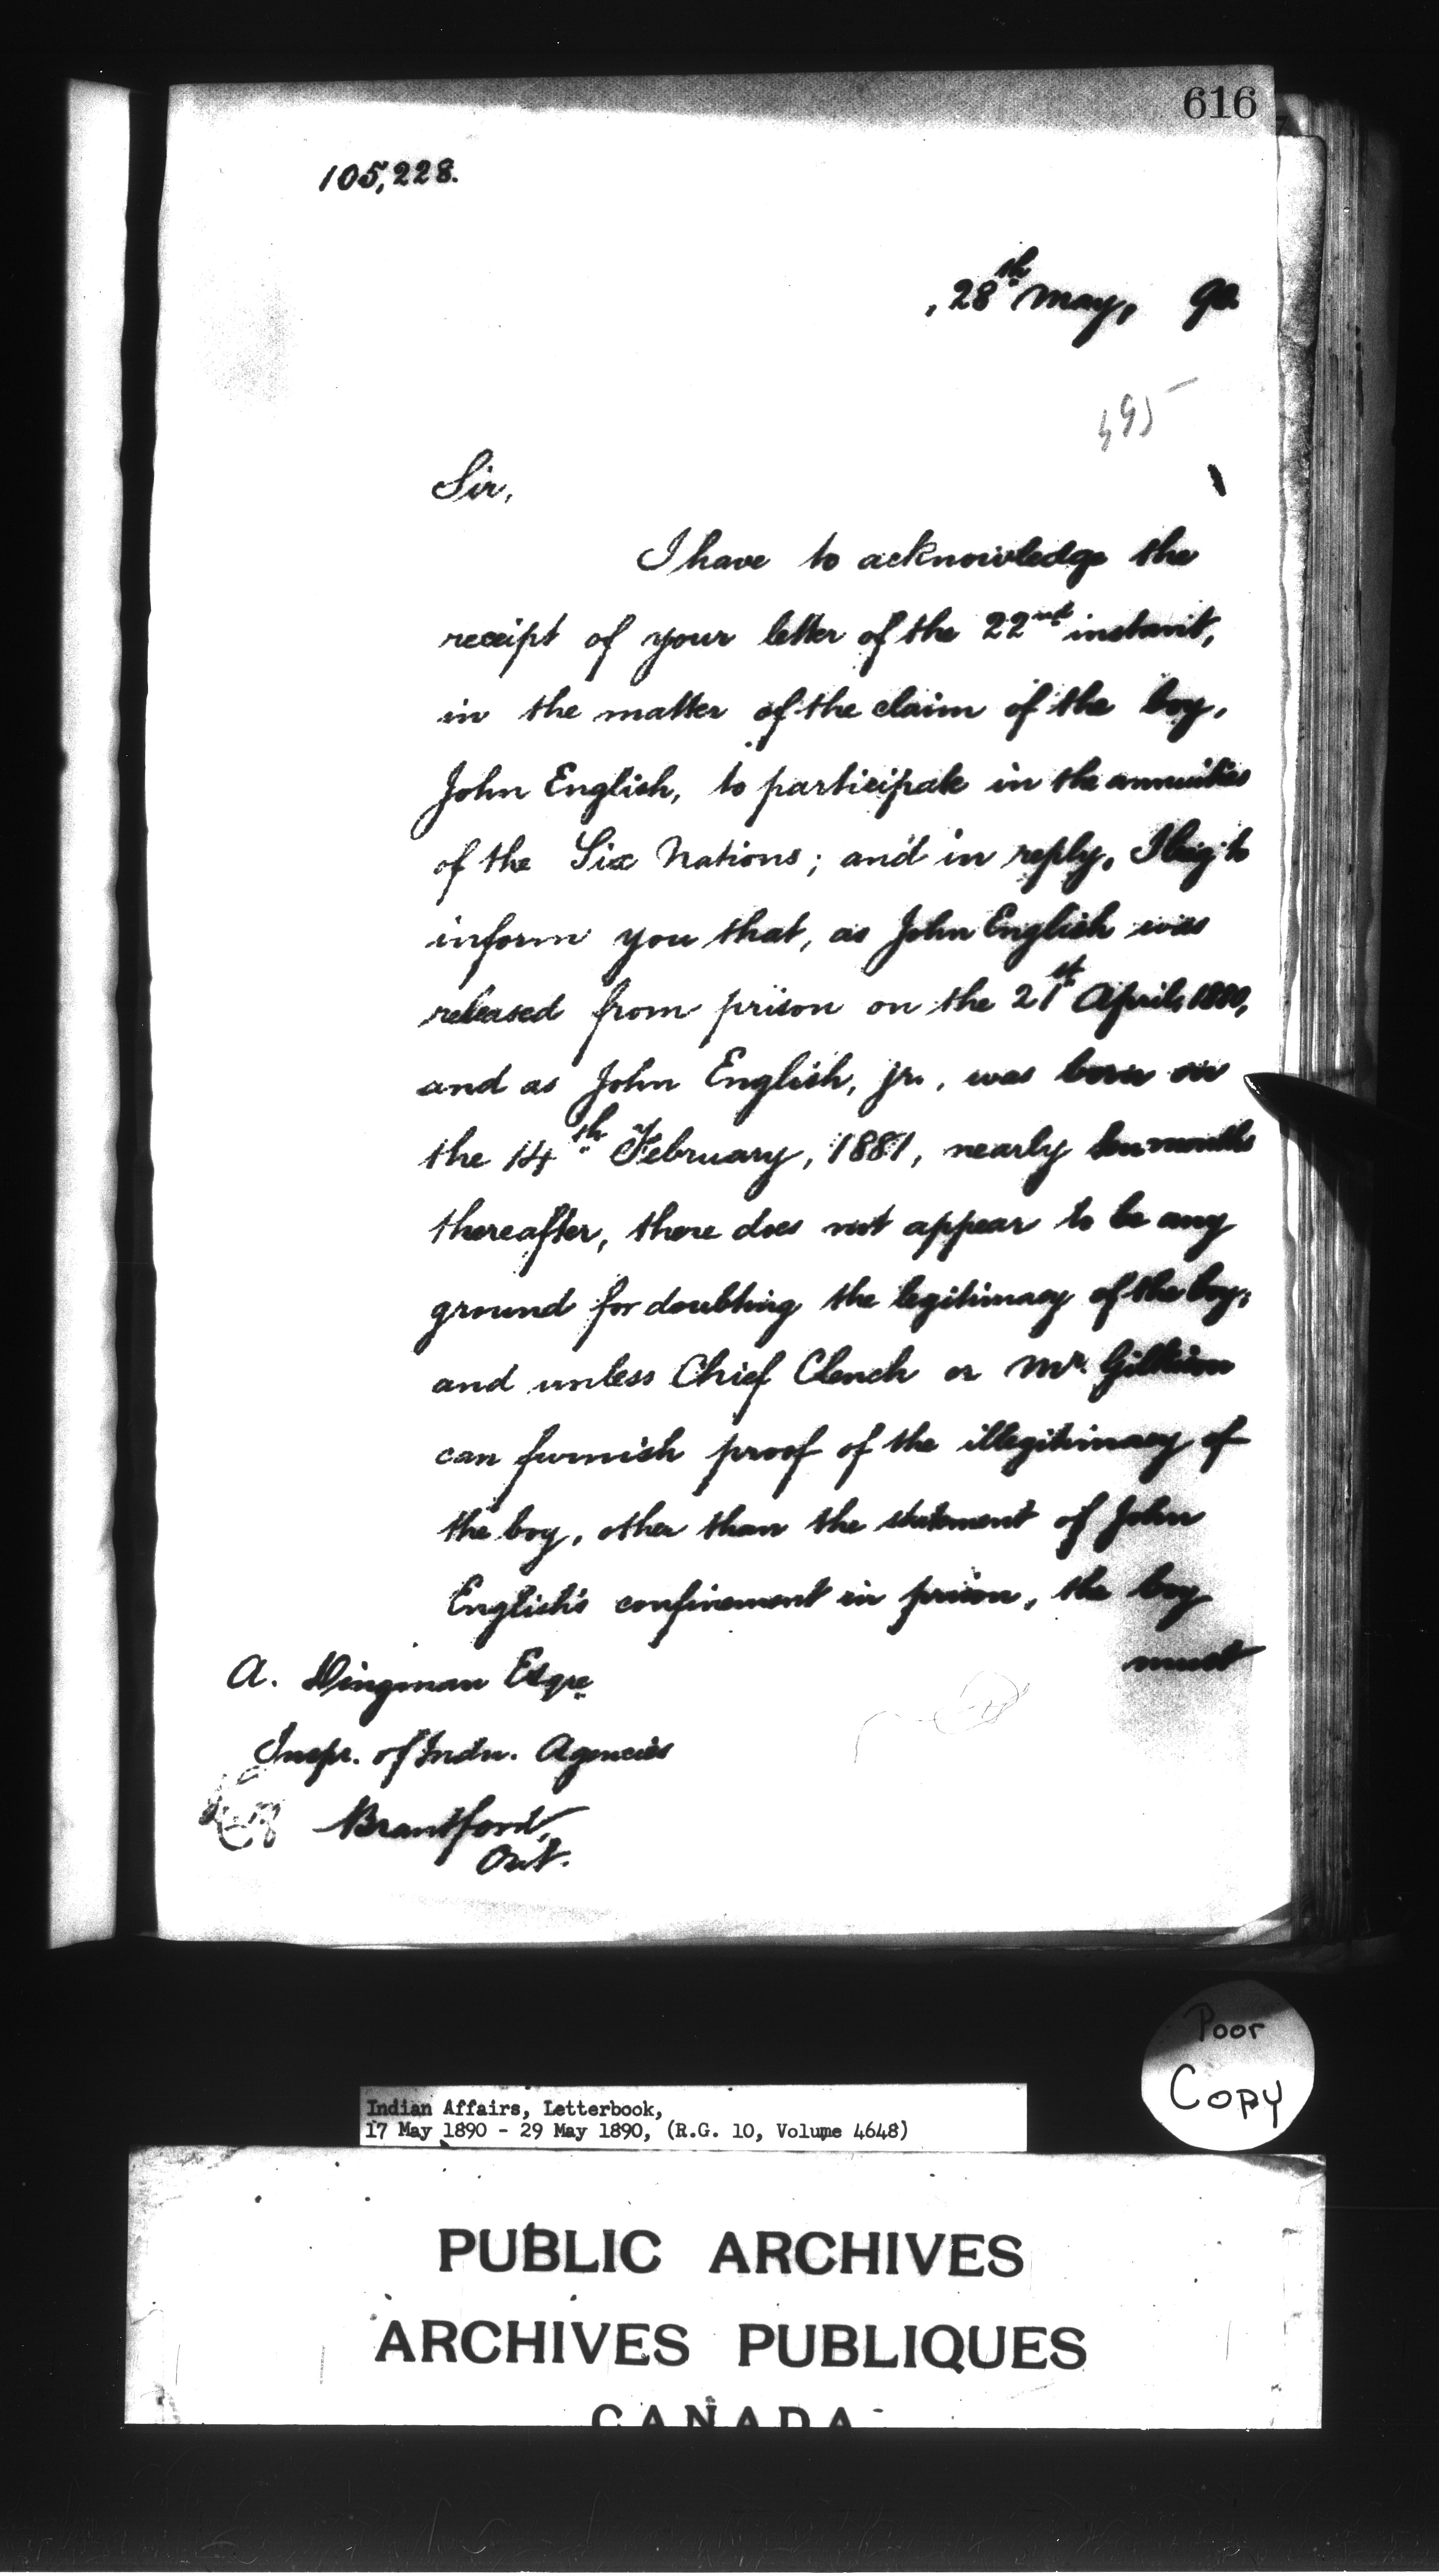 616
105,228.
, 28th May, 90.
Sir,
I have to acknowledge the
receipt of your letter of the 22nd instant,
in the matter of the claim of the boy,
John English, to participate in the annuities
of the Six Nations; and in reply, I beg to
inform you that, as John English was
released from prison on the 21st April, 1880,
and as John English, jr., was born on
the 14th February, 1881, nearly ten months
thereafter, there does not appear to be any
ground for doubting the legitimacy of the boy;
and unless Chief Clench or Mr.
can furnish proof of the illegitimacy of
the boy, other than the statement of John
English's confinement in prison, the boy
must
A. Dingman Esqre
Inspr. of Indn. Agencies
Brantford,
Ont.
Poor
Copy
Indian Affairs, Letterbook,
17 May 1890 - 29 May 1890, (R.G. 10, Volume 4648)
PUBLIC ARCHIVES
ARCHIVES PUBLIQUES
CANADA